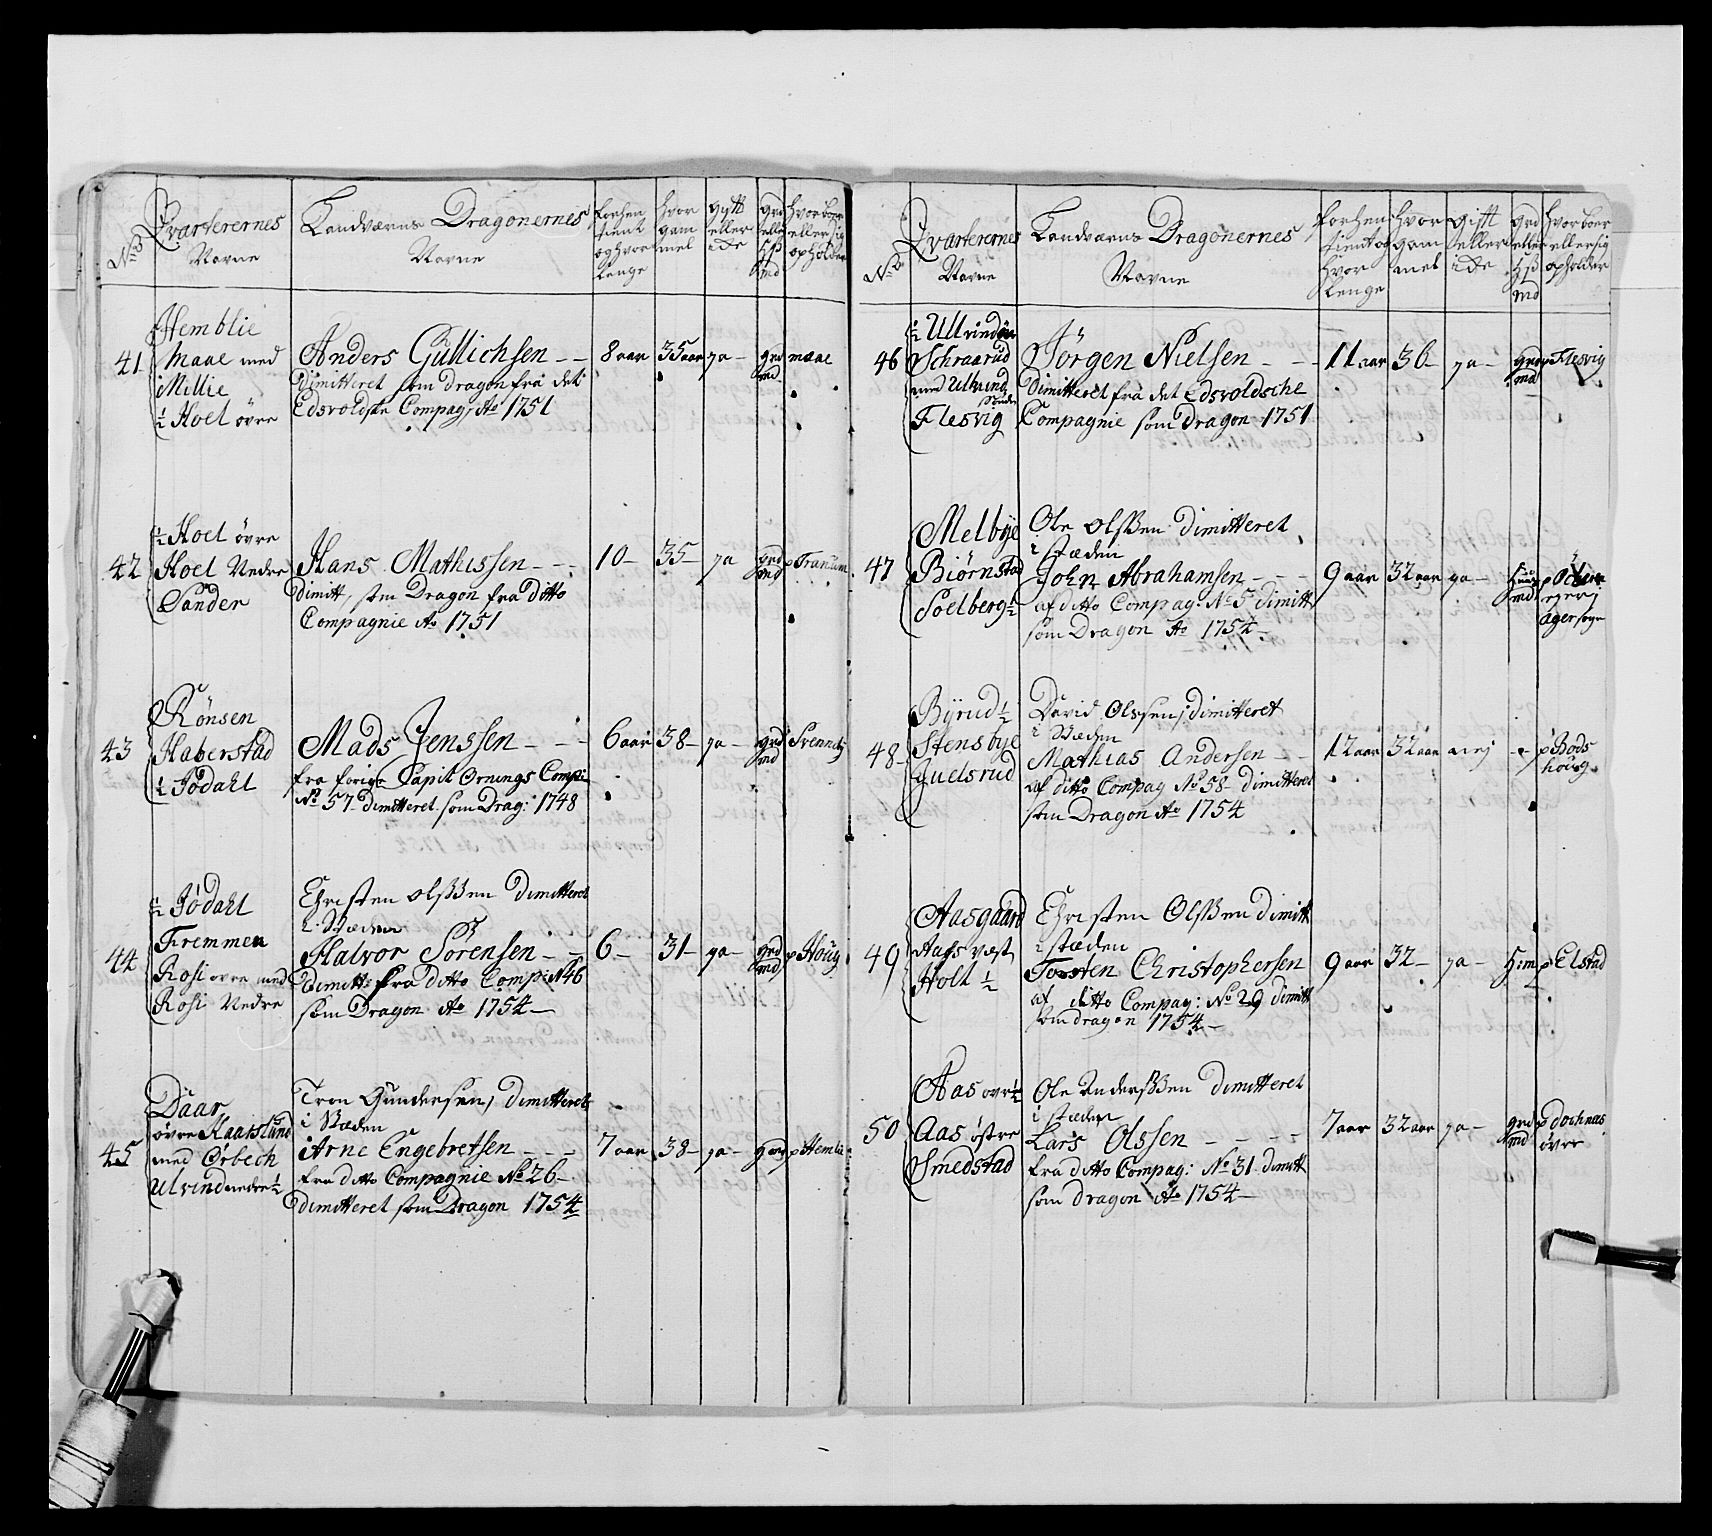 No
Qvarterernes
Navne
Landværns Dragonernes
Navne
forhen
tient
og hvor
Lenge
hvor
gam
mel
gift
eller
ide
grd
eller
hß
md
hvor boer
eller sig
opholder
41
Hemblie
Maae med
Millie
½ Hoel øvre
Anders Güllichsen
Dimitteret som Dragon fra det
Edsvoldske Compag, Ao 1751
8 aar
35 aar
ja
grd
md
maae
42
½ Hoel øvre
Hoel Nedre
Sander
Hans Mathissen
Dimitt, som Dragon fra Ditto
Compagnie Ao 1751
10
35
ja
grd
md
p Tranum
43
Rønsen
Haberstad
½ Jødahl
Mads Jenssen
fra forige Capit Ornings Comp:
No 57 Dimitteret som Drag: 1748
6 aar
38
ja
grd
md
44
½ Jødahl
Fremmen
Rosi ovre med
Rosi Nedre
Christen Olsßen Dimitteret
i Stæden
Halvor Sörensen
Dimitt: fra ditto Comp: N 46
som Dragon Ao 1754
6
31
ja
grd
md
p Houg
45
Daar
øvre
med Ørbech
Ulvind nedre ½
Tron Gundersen, Dimitteret
i Stæden
Arne Engebretsen
fra ditto Compagnie No 26
Dimitteret som Dragon 1754
7 aar
38
ja
p Hemlie
No
Qvarterernes
Navne
Landværns Dragonernes
Navne
forhen
tient og
hvor
Lenge
hvor
gam
mel
gift
eller
ide
grd
eller
hß
md
hvor boer
eller sig
opholder
46
½ Ullvind
Schraarud
med Ullvind
Flesvig
Jörgen Nielsen
Dimitteret fra det Edsvoldsche
Compagnie som Dragon 1751
11 aar
36
ja
md
Flesvig
47
Melbye
Biørnstad
Soelberg ½
Ole Olsßen Dimitteret
i stæden
John Abrahamsen
af ditto Compag: No 5 Dimitt
som Dragon Ao 1754
9 aar
32 aar
ja
md
ager sogn
48
Byrud ½
Stensbye
Juelsrud
David Olssen, Dimitteret
i Stæden
Mathias Andersen
af ditto Compag No 58 Dimitteret
som Dragon Ao 1754
12 aar
32 aar
nej
p Bøds
49
Aasgaard
Holt ½
Christen Olsßen Dimitt
i stæden
Torsten Christophersen
af ditto Compag: No 29 Dimitt
som dragon 1754
9 aar
32
ja
p Elstad
50
Aas ovr ½
Aas østre
Smedstad
Ole Andersßen Dimitteret
i stæden
Lars Olssen
fra ditto Compag: No 31 Dimitt
som dragon Ao 1754
7 aar
32 aar
ja
grd
md
p Dochnas
øvre